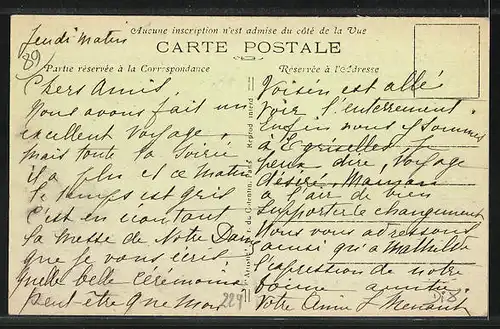 Aucune inscription n'est admise du côté de la Vue
CARTE POSTALE
Partie réservée à la Correspondance
Réservée à l'Adresse
Jeudi matin
89
Chers Amis,
Nous avons fait un
excellent voyage,
mais toute la soirée
il a plu et ce matin
le temps est gris
C'est en écoutant
la messe de Notre Dame
que je vous écris
quelle belle cérémonie
peut-être que mon
voisin est allé
voir l'enterrement
Enfin nous y sommes
à Egriselles je
peux dire, voyage
désiré, Maman
a l'air de bien
supporter le changement
Nous vous adressons
ainsi qu'à Mathilde
l'expression de notre
bonne amitié
Votre Amie L
224